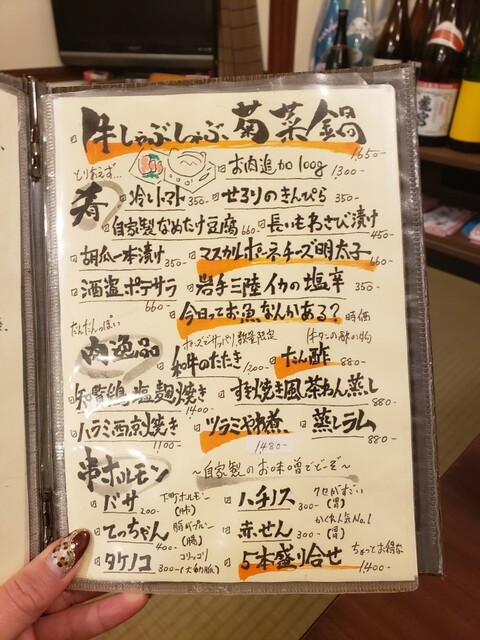 牛しゃぶしゃぶ、菊菜鍋 1650-
とりあえず… お肉追加100g 1300-
肴 冷しトマト 350- せろりのきんぴら 350-
自家製なめたけ豆腐 660- 長いもわさび漬け 450-
胡瓜一本漬け 350- マスカルポーネチーズ明太子 660-
酒盗ポテサラ 660- 岩手三陸イカの塩辛 350-
今日ってお魚なんかある? 時価
肉逸品 数量限定
和牛のたたき 1200- たん酢 880-
知覧鶏塩麹焼き 1400- すき焼き風茶わん蒸し 880-
ハラミ西京焼き 1100- ツラミやわ煮 1480- 蒸しラム 880-
串ホルモン 〜自家製のお味噌でどーぞ〜
バサ 200- 下町ホルモン(肺) ハチノス 300- クセがすごい(胃)
てっちゃん 400- (腸) 赤せん 300- かくれ人気No.1(胃)
タケノコ 300- コリッコリ(大動脈) 5本盛り合せ 1400- ちょっとお得な